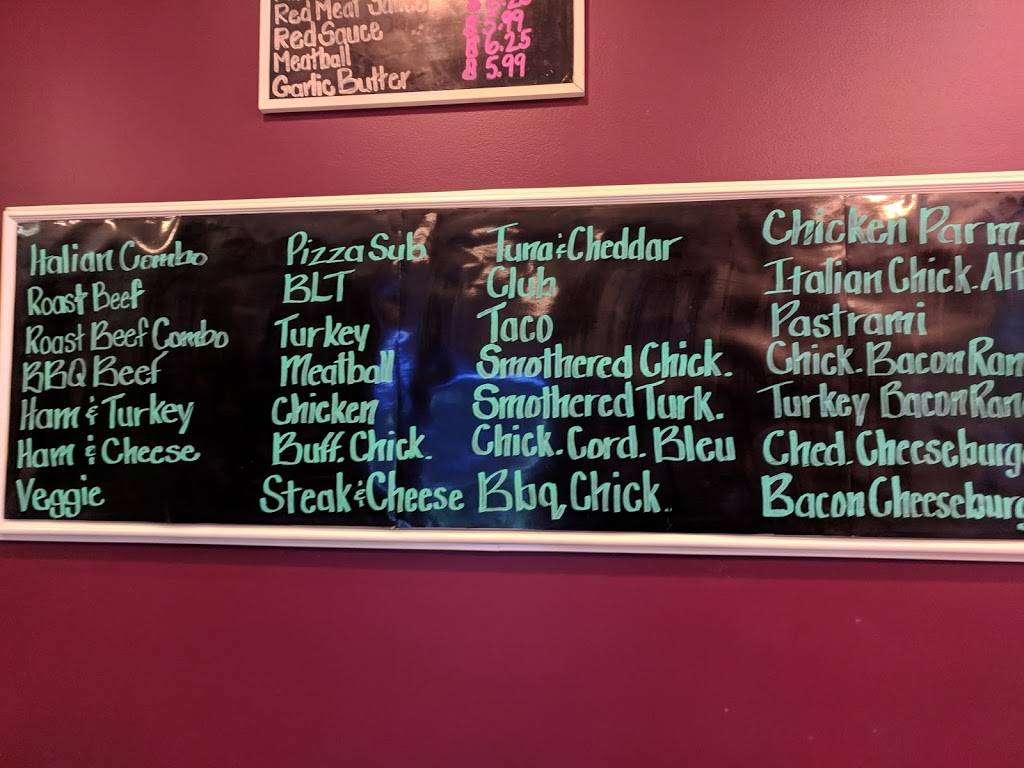 Red Meat Sauce
Red Sauce $ 5.99
Meatball $ 6.25
Garlic Butter $ 5.99
Italian Combo
Roast Beef
Roast Beef Combo
BBQ Beef
Ham & Turkey
Ham & Cheese
Veggie
Pizza Sub
BLT
Turkey
Meatball
Chicken
Buff. Chick.
Steak & Cheese
Tuna & Cheddar
Club
Taco
Smothered Chick.
Smothered Turk.
Chick. Cord. Bleu
Bbq Chick.
Chicken Parm.
Italian Chick. Alf
Pastrami
Chick. Bacon Ran
Turkey Bacon Ran
Ched. Cheeseburg
Bacon Cheeseburg